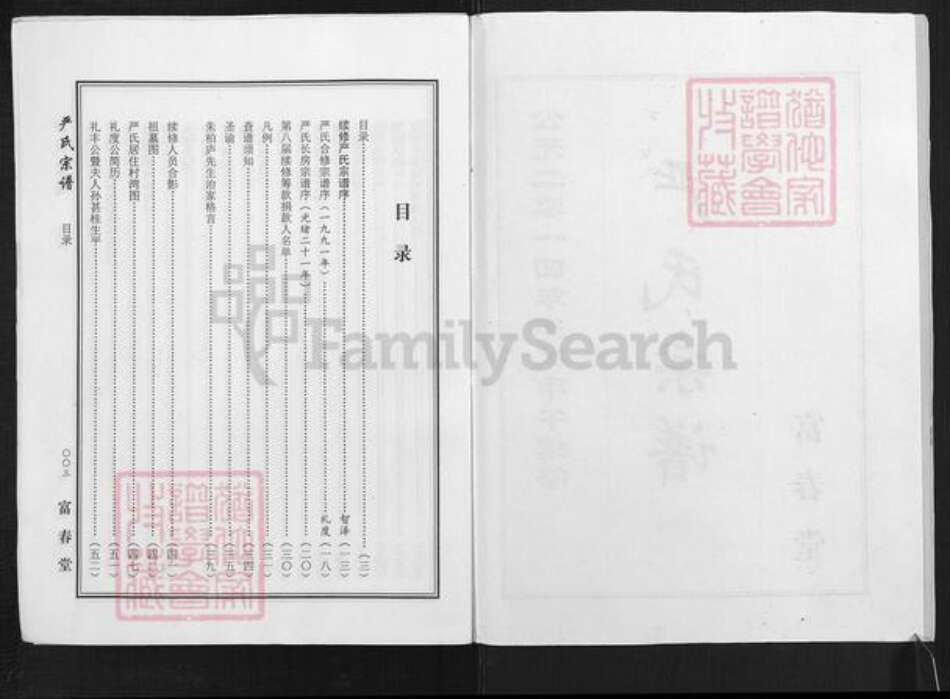 目录
目录……（三）
续修严氏宗谱序……智泽（一三）
严氏合修宗谱序（一九九一年）……礼度（一八）
严氏长房宗谱序（光绪二十一年）……（二〇）
第八届续修筹款捐款人名单……（三〇）
凡例……（三一）
查谱须知……（三四）
圣谕……（三五）
朱柏庐先生治家格言……（三九）
续修人员合影……（四一）
祖墓图……（四四）
严氏居住村湾图……（四七）
礼度公简历……（五一）
礼丰公暨夫人孙甚桂生平……（五二）
严氏宗谱
目录
〇〇三
富春堂
FamilySearch
谱学会
收藏
氏
谱
富春堂